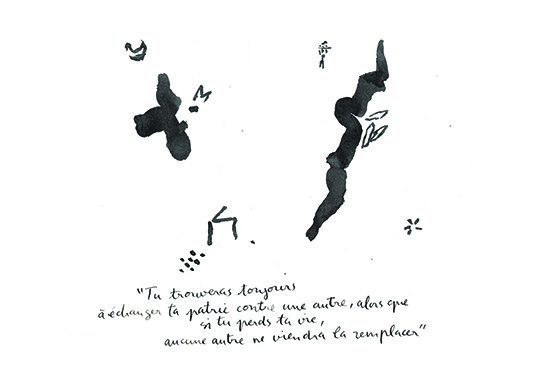 "Tu trouveras toujours
à échanger ta patrie contre une autre, alors que
si tu perds ta vie,
aucune autre ne viendra la remplacer"